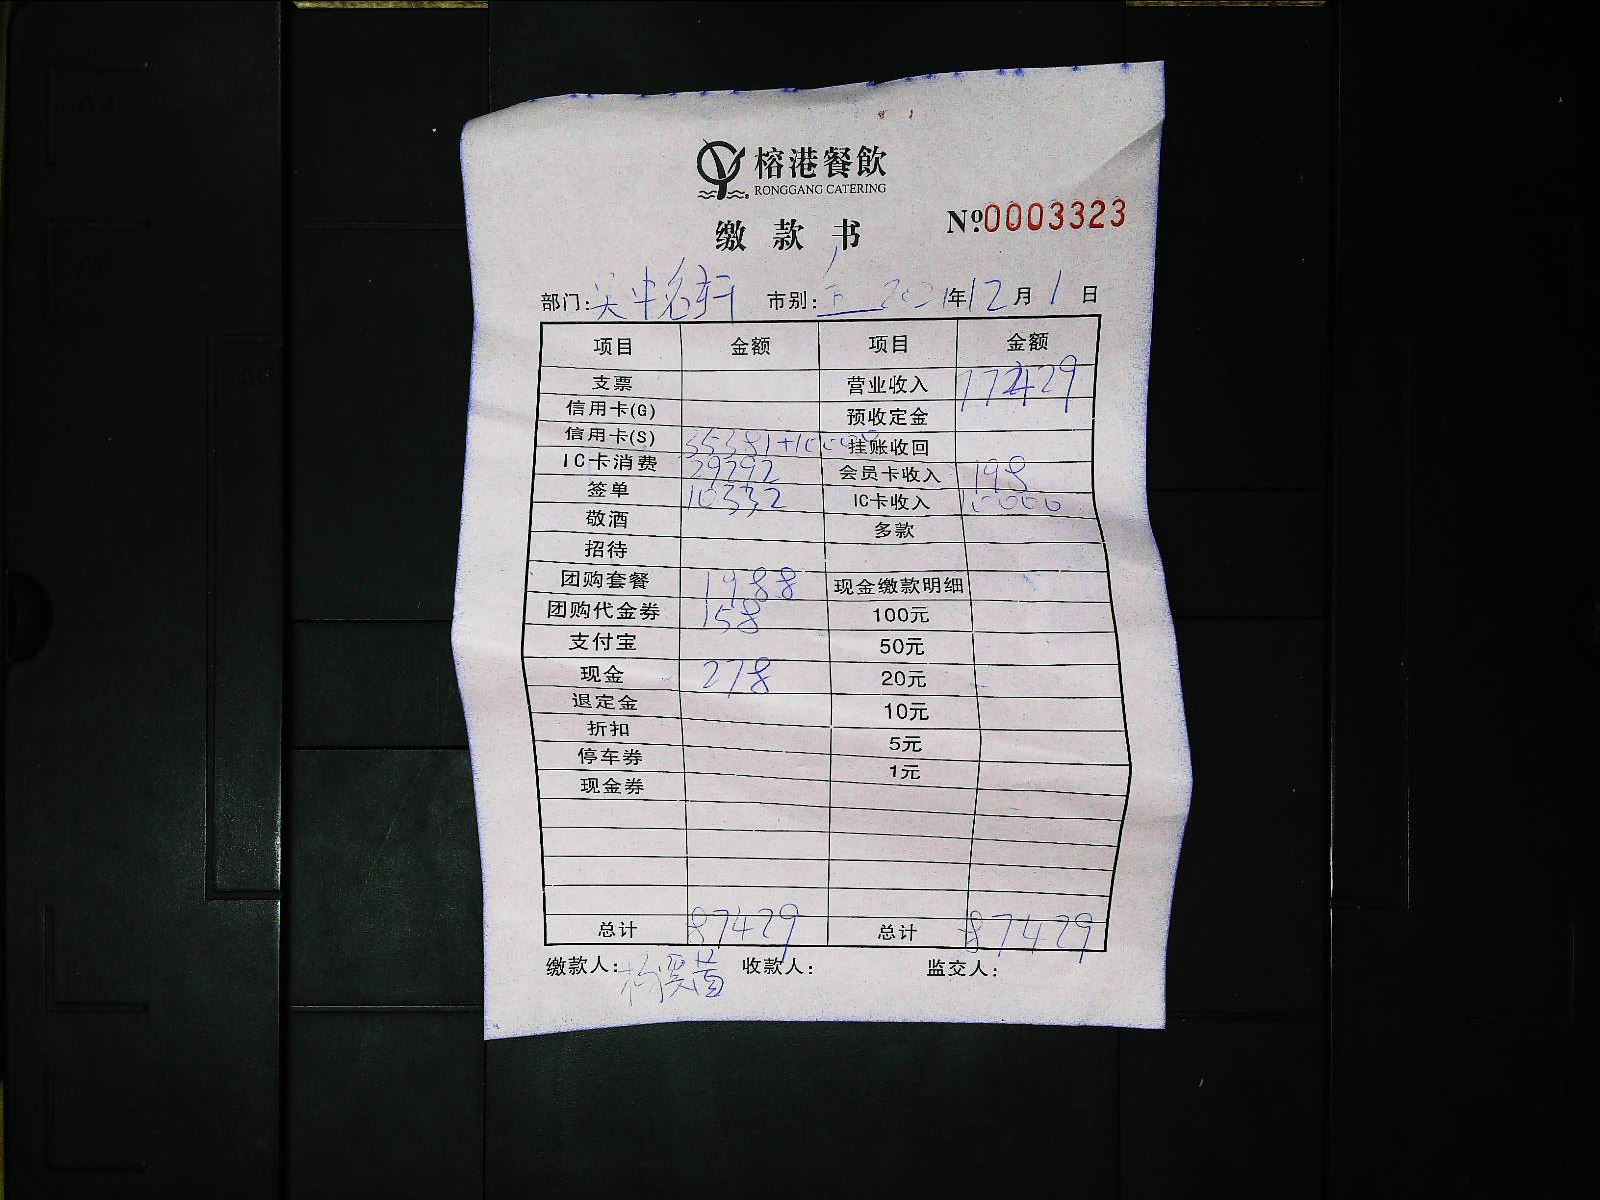 榕港餐飲
RONGGANG CATERING
缴款书
№0003323
部门:吴中名轩 市别: 2021年12月1日
项目 金额 项目 金额
支票 营业收入 77429
信用卡(G) 预收定金
信用卡(S) 35381+10000 挂账收回
IC卡消费 29292 会员卡收入 198
签单 10332 IC卡收入 10000
敬酒 多款
招待
团购套餐 1988 现金缴款明细
团购代金券 158 100元
支付宝 50元
现金 278 20元
退定金 10元
折扣 5元
停车券 1元
现金券
总计 87429 总计 87429
缴款人: 收款人: 监交人: